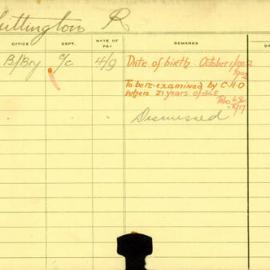 hittington R
OFFICE DEPT. RATE OF PAY REMARKS
B/Bry 4/9 Date of birth October
To be re-examined by C.M.O
when 21 years of age
Dismissed